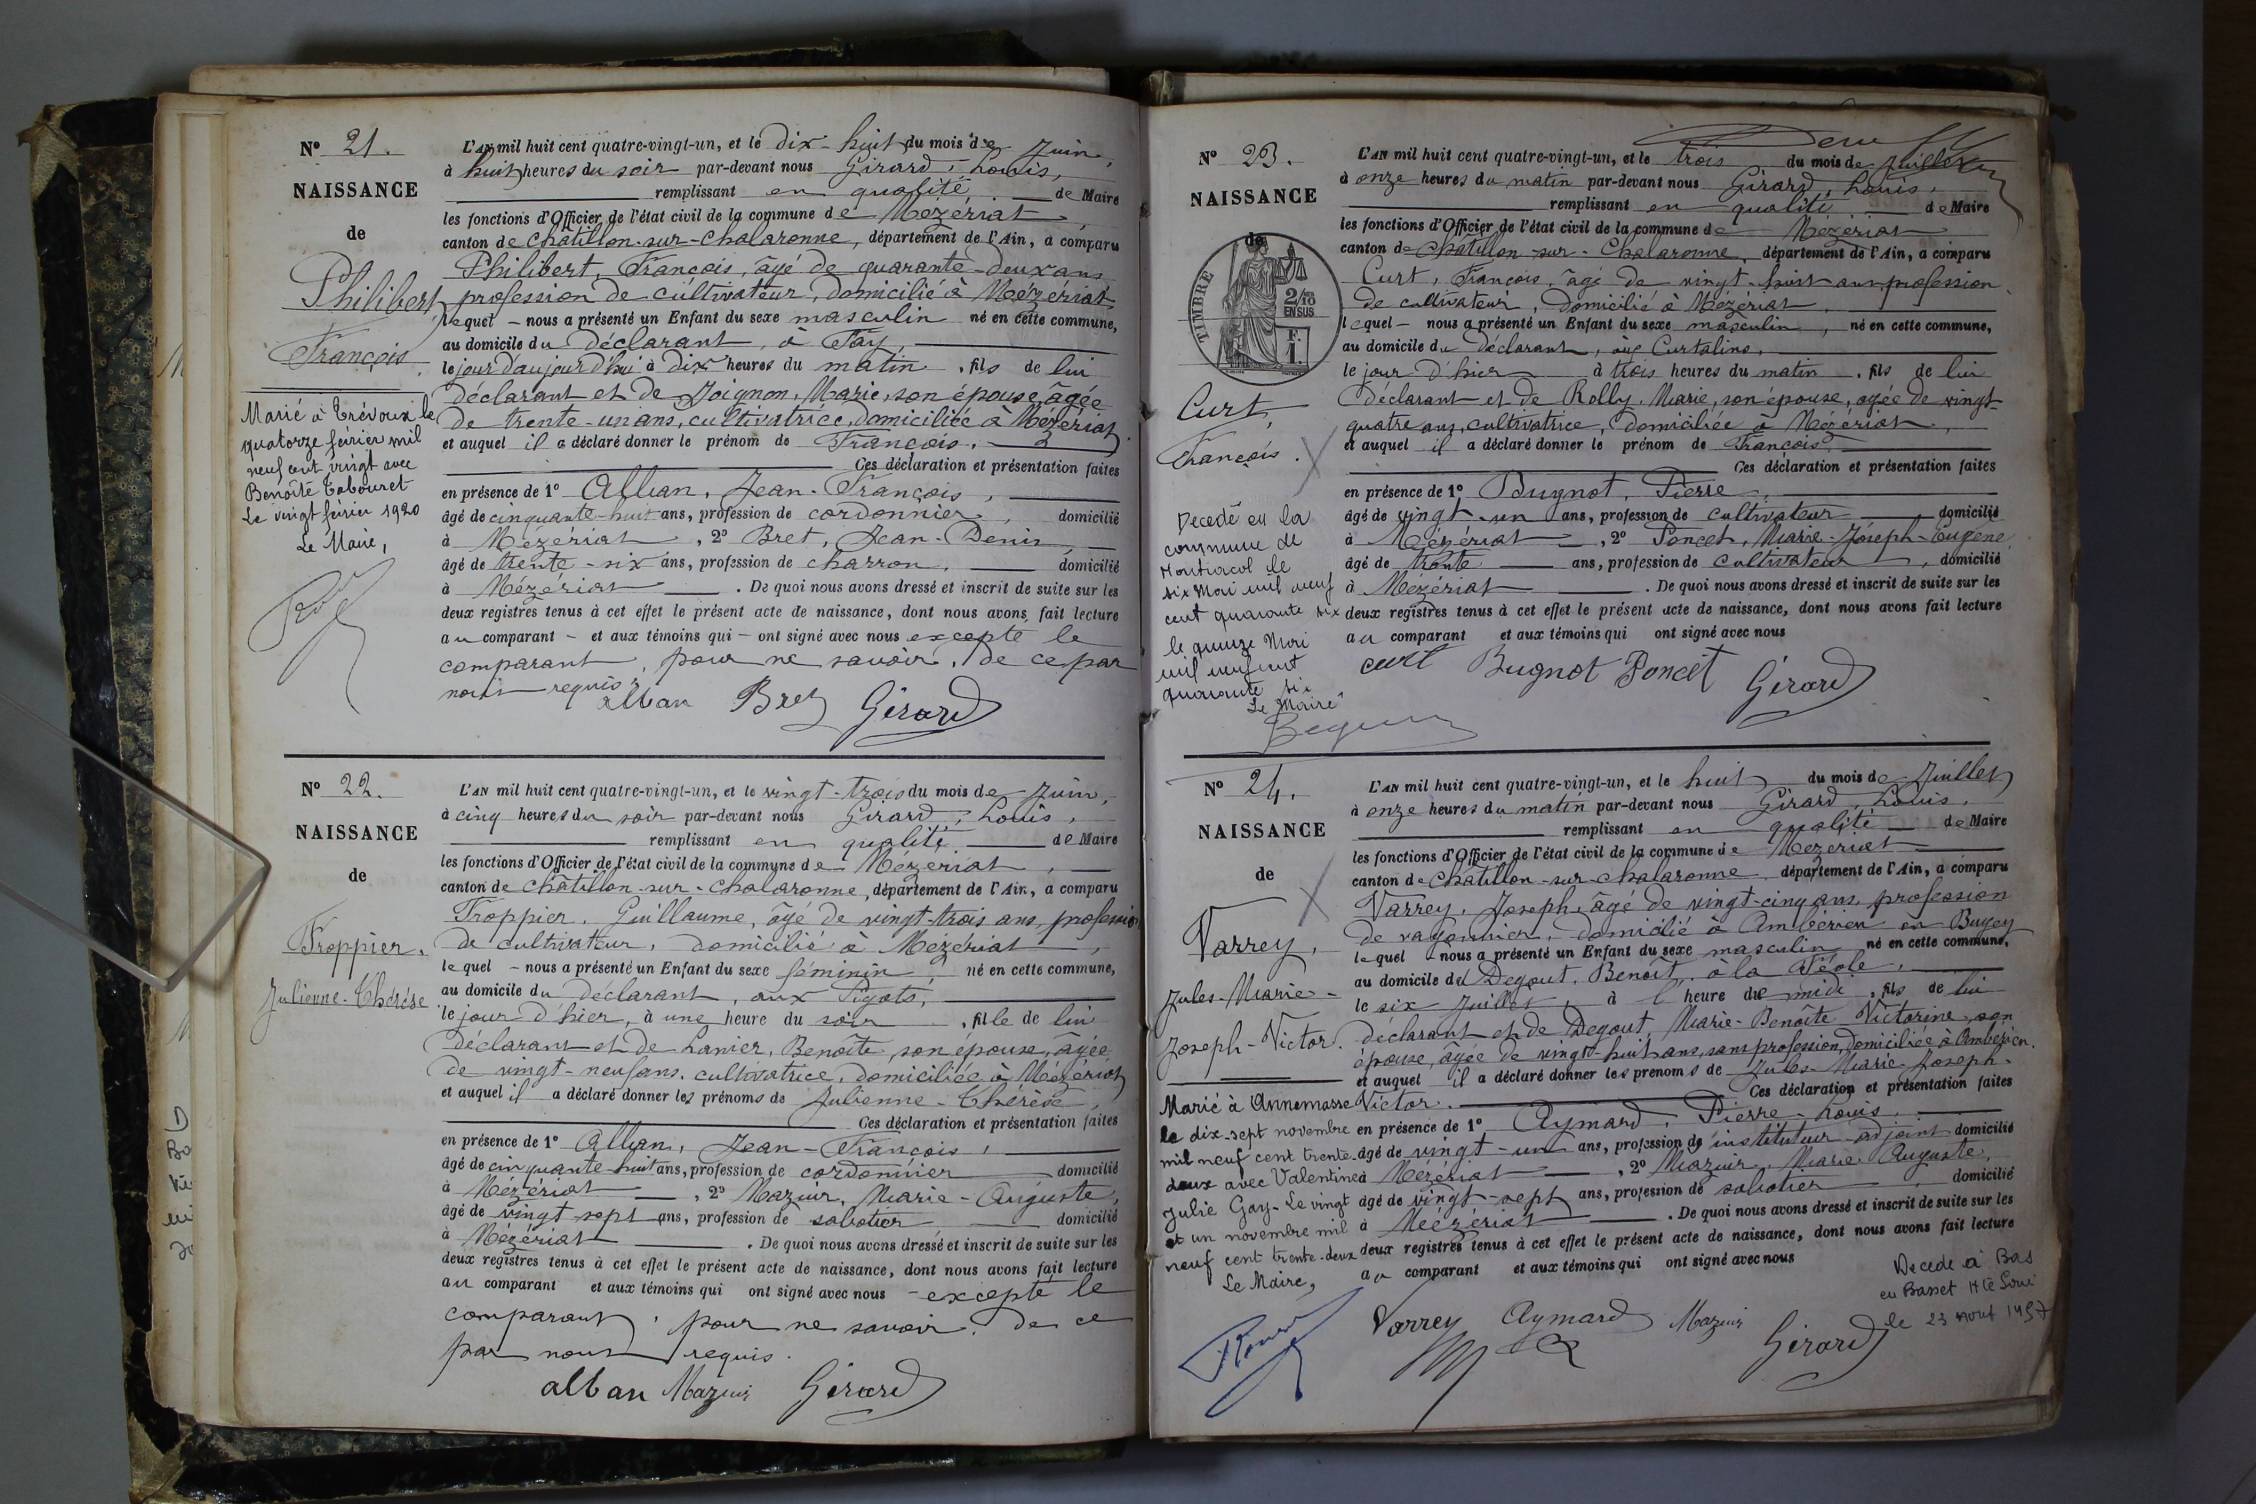 N° 21.
NAISSANCE
de
Philibert,
François.
Marié à Trévoux le
quatorze février mil
neuf cent vingt avec
Benoîte Tabouret
Le vingt février 1920
Le Maire,
L'AN mil huit cent quatre-vingt-un, et le dix-huit du mois de Juin,
à huit heures du soir par-devant nous Girard, Louis,
remplissant en qualité de Maire
les fonctions d'Officier de l'état civil de la commune de Mézériat
canton de Châtillon-sur-Chalaronne, département de l'Ain, a comparu
Philibert, François, âgé de quarante-deux ans
profession de cultivateur, domicilié à Mézériat
lequel - nous a présenté un Enfant du sexe masculin né en cette commune,
au domicile du déclarant, à Fay,
le jour d'aujourd'hui à dix heures du matin, fils de lui
déclarant et de Joignon, Marie, son épouse, âgée
de trente-un ans, cultivatrice, domiciliée à Mézériat,
et auquel il a déclaré donner le prénom de François.
Ces déclaration et présentation faites
en présence de 1° Alban, Jean-François,
âgé de cinquante-huit ans, profession de cordonnier, domicilié
à Mézériat, 2° Bret, Jean-Denis,
âgé de trente-six ans, profession de charron, domicilié
à Mézériat. De quoi nous avons dressé et inscrit de suite sur les
deux registres tenus à cet effet le présent acte de naissance, dont nous avons fait lecture
au comparant - et aux témoins qui - ont signé avec nous excepté le
comparant, pour ne savoir, de ce par
nous requis.
alban Bret Girard
N° 22.
NAISSANCE
de
Froppier,
Julienne-Thérèse
L'AN mil huit cent quatre-vingt-un, et le vingt-trois du mois de Juin,
à cinq heures du soir par-devant nous Girard, Louis,
remplissant en qualité de Maire
les fonctions d'Officier de l'état civil de la commune de Mézériat,
canton de Châtillon-sur-Chalaronne, département de l'Ain, a comparu
Froppier, Guillaume, âgé de vingt-trois ans, profession
de cultivateur, domicilié à Mézériat,
lequel - nous a présenté un Enfant du sexe féminin, né en cette commune,
au domicile du déclarant, aux Pigots,
le jour d'hier, à une heure du soir, fille de lui
déclarant et de Lanier, Benoîte, son épouse, âgée
de vingt-neuf ans, cultivatrice, domiciliée à Mézériat
et auquel il a déclaré donner les prénoms de Julienne-Thérèse,
Ces déclaration et présentation faites
en présence de 1° Alban, Jean-François,
âgé de cinquante-huit ans, profession de cordonnier domicilié
à Mézériat, 2° Mazuir, Marie-Auguste,
âgé de vingt sept ans, profession de sabotier domicilié
à Mézériat. De quoi nous avons dressé et inscrit de suite sur les
deux registres tenus à cet effet le présent acte de naissance, dont nous avons fait lecture
au comparant et aux témoins qui ont signé avec nous - excepté le
comparant, pour ne savoir, de ce
par nous requis.
alban Mazuir Girard
N° 23.
NAISSANCE
de
TIMBRE
2/10
EN SUS
F.
1.
Curt,
François.
Décédé en la
commune de
Montracol le
six Mai mil neuf
cent quarante six
le quinze Mai
mil neuf cent
quarante six
Le Maire
L'AN mil huit cent quatre-vingt-un, et le trois du mois de Juillet
à onze heures du matin par-devant nous Girard, Louis,
remplissant en qualité de Maire
les fonctions d'Officier de l'état civil de la commune de Mézériat
canton de Châtillon-sur-Chalaronne, département de l'Ain, a comparu
Curt, François, âgé de vingt-huit ans profession
de cultivateur, domicilié à Mézériat,
lequel - nous a présenté un Enfant du sexe masculin, né en cette commune,
au domicile du déclarant, aux Curtalins,
le jour d'hier à trois heures du matin, fils de lui
déclarant et de Rolly, Marie, son épouse, agée de vingt-
quatre ans, cultivatrice, domiciliée à Mézériat,
et auquel il a déclaré donner le prénom de François.
Ces déclaration et présentation faites
en présence de 1° Bugnot, Pierre,
âgé de vingt-un ans, profession de cultivateur domicilié
à Mézériat, 2° Poncet, Marie-Joseph-Eugène
âgé de trente ans, profession de cultivateur, domicilié
à Mézériat. De quoi nous avons dressé et inscrit de suite sur les
deux registres tenus à cet effet le présent acte de naissance, dont nous avons fait lecture
au comparant et aux témoins qui ont signé avec nous
curt Bugnot Poncet Girard
N° 24.
NAISSANCE
de
Varrey,
Jules-Marie-
Joseph-Victor.
Marié à Annemasse
le dix-sept novembre
mil neuf cent trente-
deux avec Valentine
Julie Gay. Le vingt
et un novembre mil
neuf cent trente-deux
Le Maire,
L'AN mil huit cent quatre-vingt-un, et le huit du mois de Juillet
à onze heures du matin par-devant nous Girard, Louis,
remplissant en qualité de Maire
les fonctions d'Officier de l'état civil de la commune de Mézériat
canton de Châtillon-sur-Chalaronne, département de l'Ain, a comparu
Varrey, Joseph, âgé de vingt-cinq ans, profession
de rayonnier, domicilié à Ambérieu en Bugey
lequel nous a présenté un Enfant du sexe masculin né en cette commune,
au domicile du Degout, Benoit, à la Féole,
le six Juillet, à l'heure de midi, fils de lui
déclarant et de Degout, Marie-Benoîte Victorine, son
épouse, âgée de vingt-huit ans, sans profession, domiciliée à Ambérieu.
et auquel il a déclaré donner les prénoms de Jules-Marie-Joseph-
Victor. Ces déclaration et présentation faites
en présence de 1° Aymard, Pierre-Louis,
âgé de vingt-un ans, profession de instituteur-adjoint domicilié
à Mézériat, 2° Mazuir, Marie Auguste,
âgé de vingt-sept ans, profession de sabotier, domicilié
à Mézériat. De quoi nous avons dressé et inscrit de suite sur les
deux registres tenus à cet effet le présent acte de naissance, dont nous avons fait lecture
au comparant et aux témoins qui ont signé avec nous
Décédé à Bas
en Basset Hte Loire
le 23 Aout 1957
Varrey Aymard Mazuir Girard